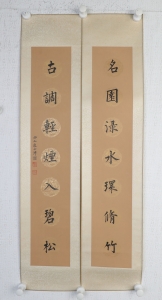 名園淥水環脩竹
古調輕煙入碧松